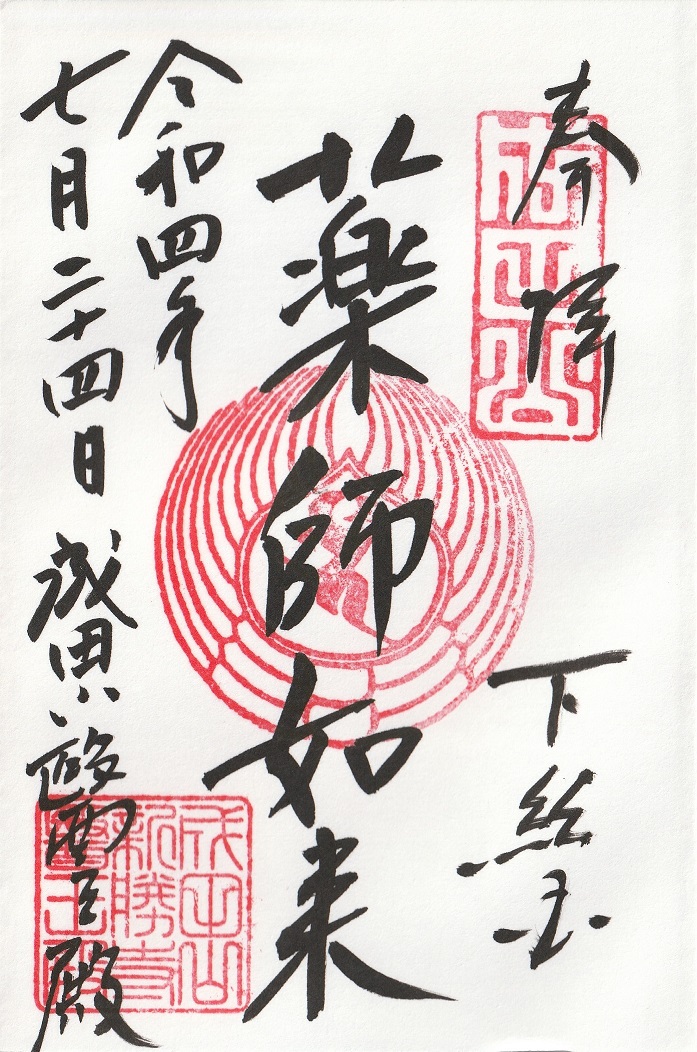 奉拝
下総国
薬師如来
令和四年
七月二十四日
成田山醫王殿
成田山
成田山
新勝寺
醫王殿